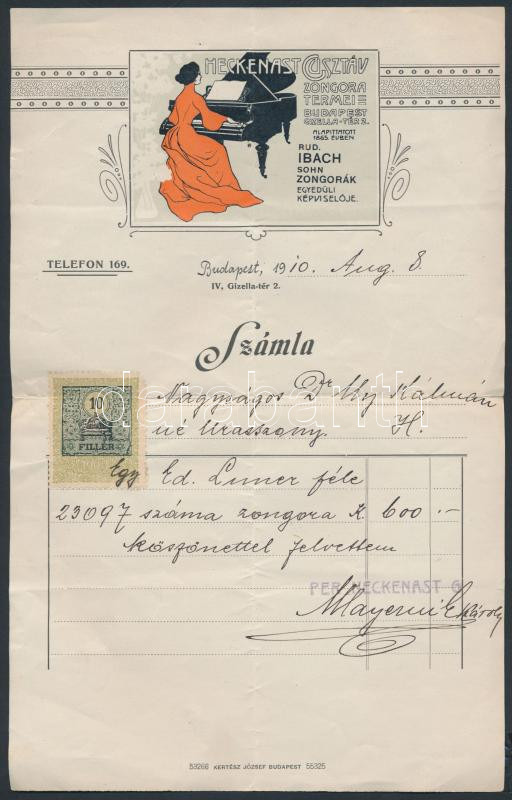 HECKENAST GUSZTÁV
ZONGORA
TERMEI
BUDAPEST
GIZELLA-TÉR 2.
ALAPÍTTATOTT
1865. ÉVBEN
RUD.
IBACH
SOHN
ZONGORÁK
EGYEDÜLI
KÉPVISELŐJE.
TELEFON 169.
Budapest, 1910. Aug. 8.
IV, Gizella-tér 2.
Számla
Nagyságos Dr Kálmán
né Urasszony. H.
10
FILLÉR
Egy Ed. féle
23097 száma zongora K 600.-
köszönettel felvettem
PER HECKENAST G.
Károly
darabanth
53266 KERTÉSZ JÓZSEF BUDAPEST 55325